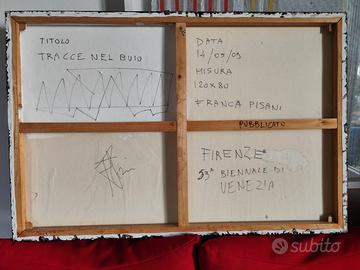 TITOLO
TRACCE NEL BUIO
DATA
14/09/09
MISURA
120X80
FRANCA PISANI
PUBBLICATO
FIRENZE
53ª BIENNALE DI
VENEZIA
subito